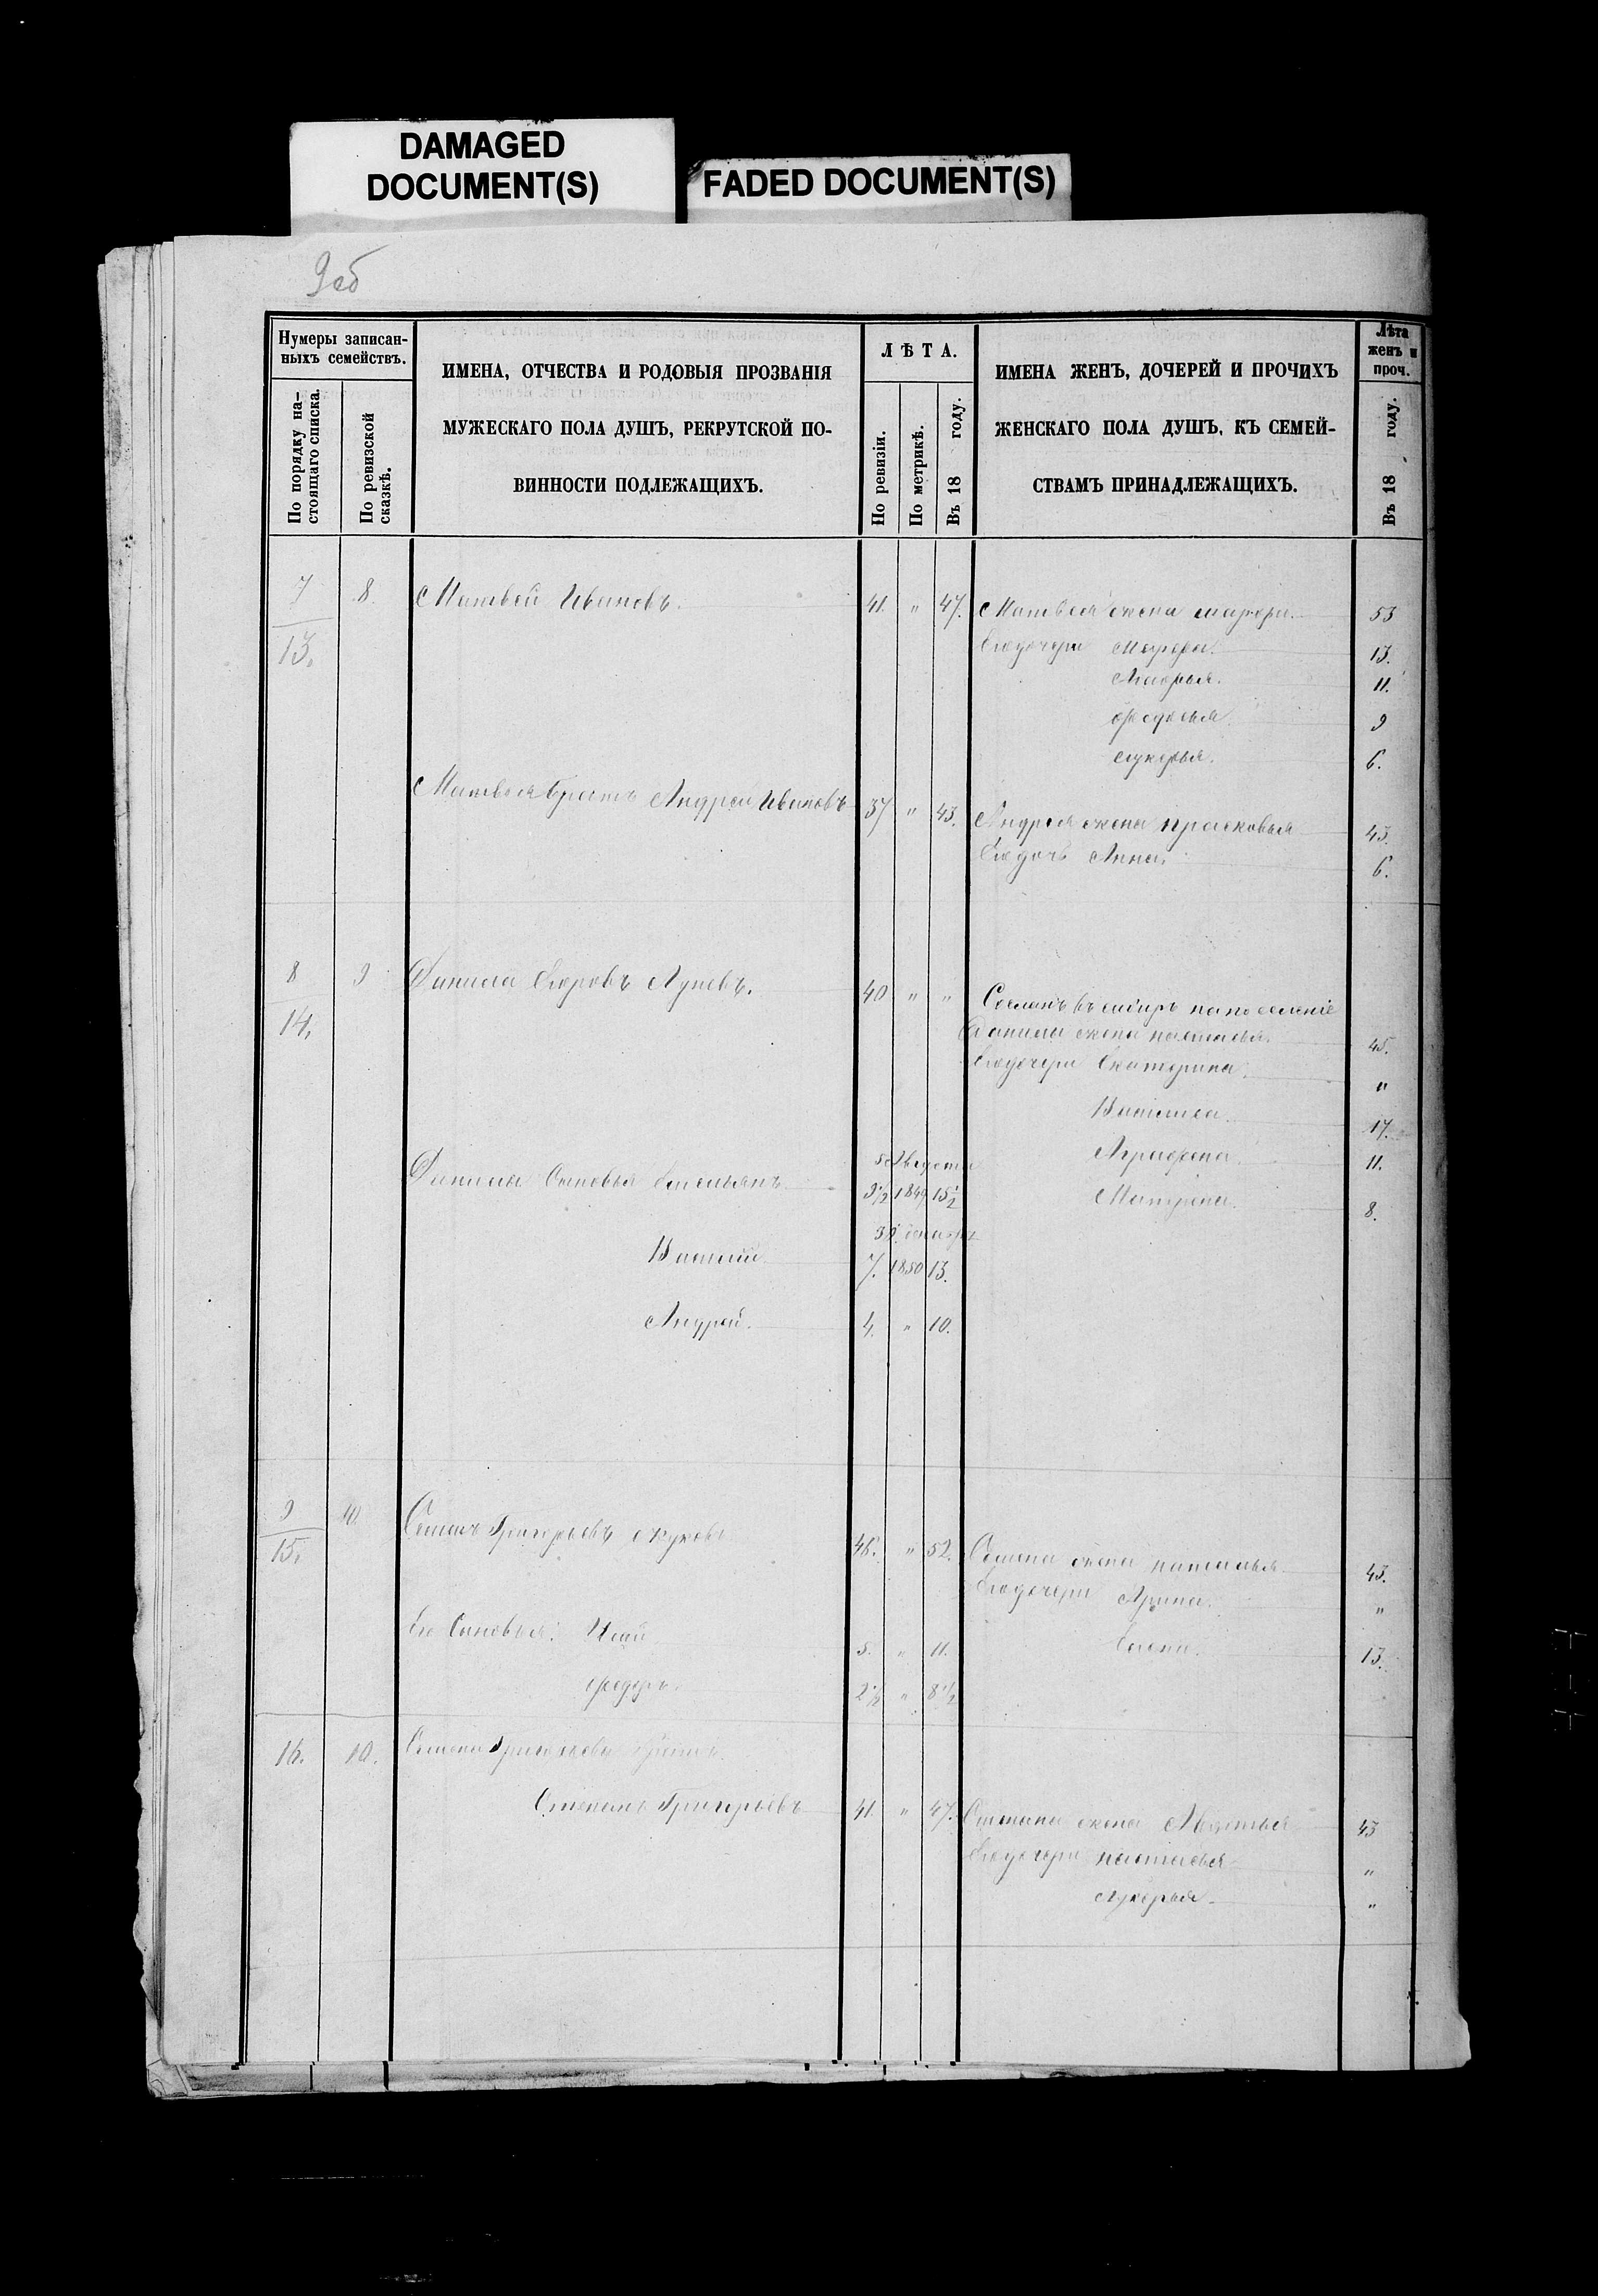 DAMAGED
DOCUMENT(S)
FADED DOCUMENT(S)
9об
Нумеры записан-
ныхъ семействъ.
По порядку на-
стоящаго списка.
По ревизской
сказкѣ.
ИМЕНА, ОТЧЕСТВА И РОДОВЫЯ ПРОЗВАНІЯ
МУЖЕСКАГО ПОЛА ДУШЪ, РЕКРУТСКОЙ ПО-
ВИННОСТИ ПОДЛЕЖАЩИХЪ.
ЛѢТА.
По ревизіи.
По метрикѣ.
Въ 18 году.
ИМЕНА ЖЕНЪ, ДОЧЕРЕЙ И ПРОЧИХЪ
ЖЕНСКАГО ПОЛА ДУШЪ, КЪ СЕМЕЙ-
СТВАМЪ ПРИНАДЛЕЖАЩИХЪ.
Лѣта
женъ и
проч.
Въ 18 году.
7 8 Матвей Ивановъ. 41. " 47. Матвея жена 53
13. Его дочери 13.
Мавры. 11.
9
6.
Матвея братъ Андрей Ивановъ 37 " 43. Андрея жена прасковья 43.
Его дочь Анна. 6.
8 9 Данила Егоровъ Луневъ. 40 " " Сосланъ въ сибирь на поселеніе
14. Данилы жена настасья. 45.
Его дочери Екатерина. "
Василиса 17.
5 Августа Аграфена. 11.
Данилы Сыновья Емельянъ 3½ 1849 15½ Матрена. 8.
Василій 7. 1850 13.
Андрей. 4. " 10.
9 10. Семенъ Григорьевъ жуковъ 46. " 52. Семена жена наталья 43.
15. Его дочери Арина. "
Его Сыновья: 5. " 11. Елена. 13.
федоръ. 2½ " 8½
16. 10. Семена Григорьева братъ
Степанъ Григорьевъ 41. " 47. Степана жена 43
Его дочери настасья "
лукерья. "